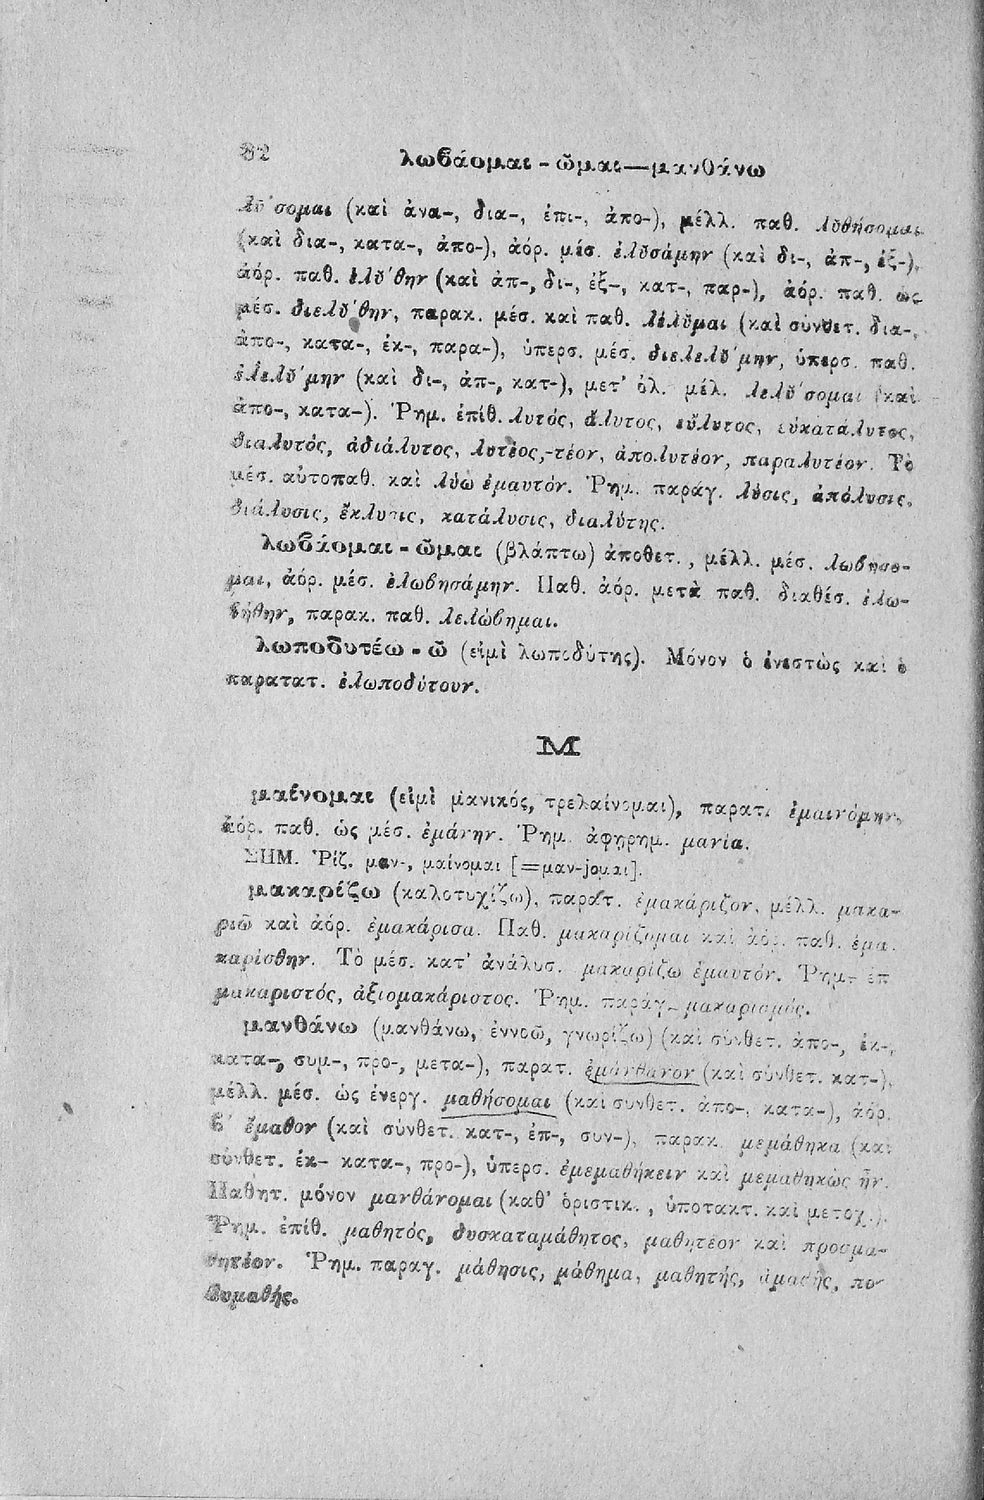 82 λωβάομαι - ῶμαι—μανθάνω
λῡ́σομαι (καὶ ἀνα-, δια-, ἐπι-, ἀπο-), μέλλ. παθ. λῠθήσομαι
(καὶ δια-, κατα-, ἀπο-), ἀόρ. μέσ. ἐλῡσάμην (καὶ δι-, ἀπ-, ἐξ-),
ἀόρ. παθ. ἐλῠ́θην (καὶ ἀπ-, δι-, ἐξ-, κατ-, παρ-), ἀόρ. παθ. ὡς
μέσ. διελῠ́θην, παρακ. μέσ. καὶ παθ. λέλῠμαι (καὶ σύνθετ. δια-,
ἀπο-, κατα-, ἐκ-, παρα-), ὑπερσ. μέσ. διελελῠ́μην, ὑπερσ. παθ.
ἐλελῠ́μην (καὶ δι-, ἀπ-, κατ-), μετ' ὀλ. μέλ. λελῡ́σομαι (καὶ
ἀπο-, κατα-). Ῥημ. ἐπίθ. λυτός, ἄλυτος, εὔλυτος, εὐκατάλυτος,
διαλυτός, ἀδιάλυτος, λυτέος,-τέον, ἀπολυτέον, παραλυτέον. Τὸ
μέσ. αὐτοπαθ. καὶ λύω ἐμαυτόν. Ῥημ. παράγ. λύσις, ἀπόλυσις,
διάλυσις, ἔκλυσις, κατάλυσις, διαλύτης.
λωβάομαι - ῶμαι (βλάπτω) ἀποθετ., μέλλ. μέσ. λωβήσο-
μαι, ἀόρ. μέσ. ἐλωβησάμην. Παθ. ἀόρ. μετὰ παθ. διαθέσ. ἐλω-
βήθην, παρακ. παθ. λελώβημαι.
λωποδυτέω - ῶ (εἰμὶ λωποδύτης). Μόνον ὁ ἐνεστὼς καὶ ὁ
παρατατ. ἐλωποδύτουν.
Μ
μαίνομαι (εἰμὶ μανικός, τρελαίνομαι), παρατ. ἐμαινόμην,
ἀόρ. παθ. ὡς μέσ. ἐμάνην. Ῥημ. ἀφηρημ. μανία.
ΣΗΜ. Ῥίζ. μαν-, μαίνομαι [=μαν-jομαι].
μακαρίζω (καλοτυχίζω), παρατ. ἐμακάριζον, μέλλ. μακα-
ριῶ καὶ ἀόρ. ἐμακάρισα. Παθ. μακαρίζομαι καὶ ἀόρ. παθ. ἐμα-
καρίσθην. Τὸ μέσ. κατ' ἀνάλυσ. μακαρίζω ἐμαυτόν. Ῥημ. ἐπ
μακαριστός, ἀξιομακάριστος. Ῥημ. παράγ. μακαρισμός.
μανθάνω (μανθάνω, ἐννοῶ, γνωρίζω) (καὶ σύνθετ. ἀπο-, ἐκ-,
κατα-, συμ-, προ-, μετα-), παρατ. ἐμάνθανον (καὶ σύνθετ. κατ-),
μέλλ. μέσ. ὡς ἐνεργ. μαθήσομαι (καὶ συνθετ. ἀπο-, κατα-), ἀόρ.
β' ἔμαθον (καὶ σύνθετ. κατ-, ἐπ-, συν-), παρακ. μεμάθηκα (καὶ
σύνθετ. ἐκ- κατα-, προ-), ὑπερσ. ἐμεμαθήκειν καὶ μεμαθηκὼς ἦν.
Παθητ. μόνον μανθάνομαι (καθ' ὁριστικ., ὑποτακτ. καὶ μετοχ.).
Ῥημ. ἐπίθ. μαθητός, δυσκαταμάθητος, μαθητέον καὶ προσμα-
θητέον. Ῥημ. παραγ. μάθησις, μάθημα, μαθητής, ἀμαθής, πο-
λυμαθής.